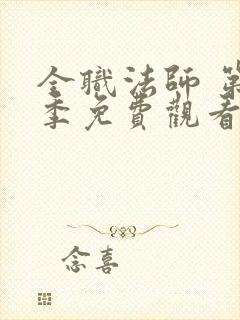 全職法師 第
季免費觀看
念喜